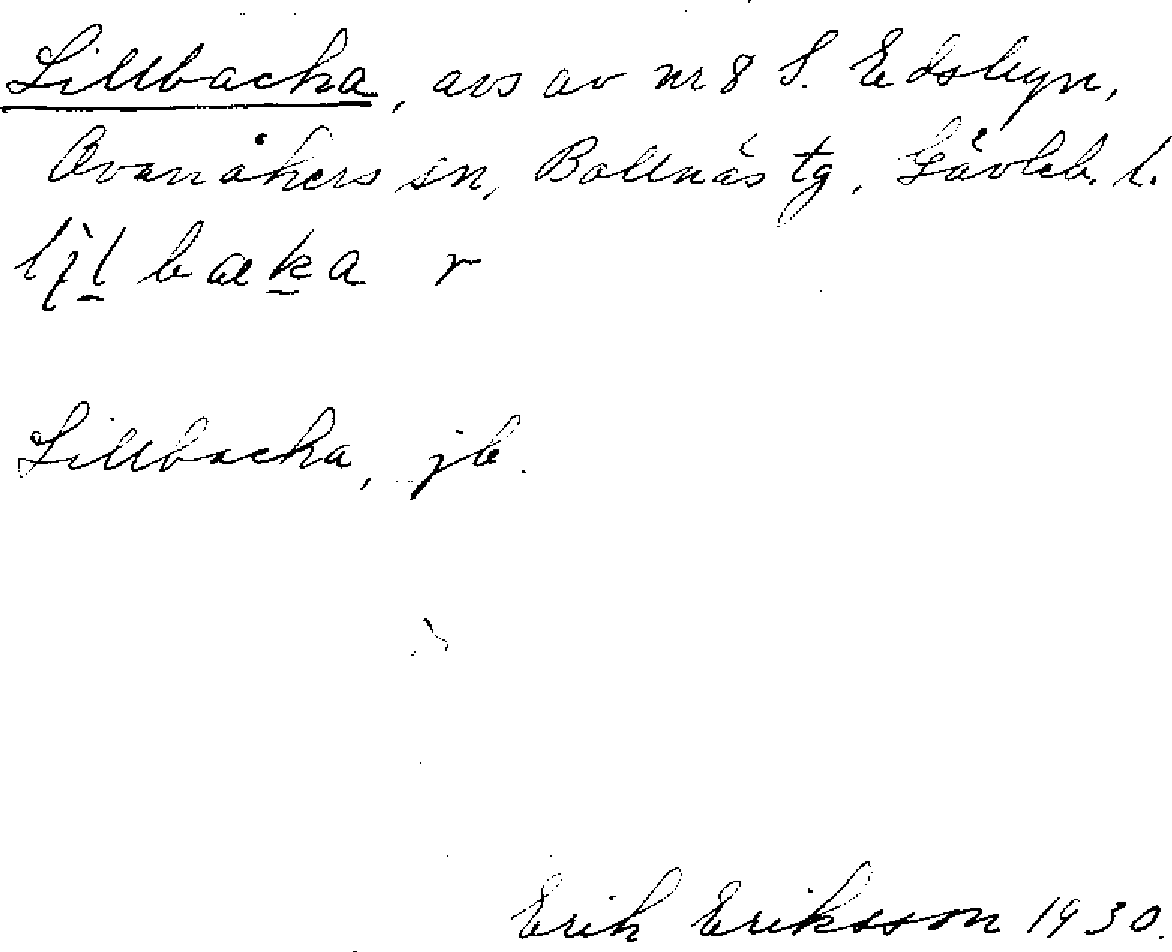 Lillbacka, avs av nr 8 S. Edsbyn,
Ovanåkers sn, Bollnäs tg, Gävleb. l.
Lillbacka, jb.
Erik Eriksson 1930.